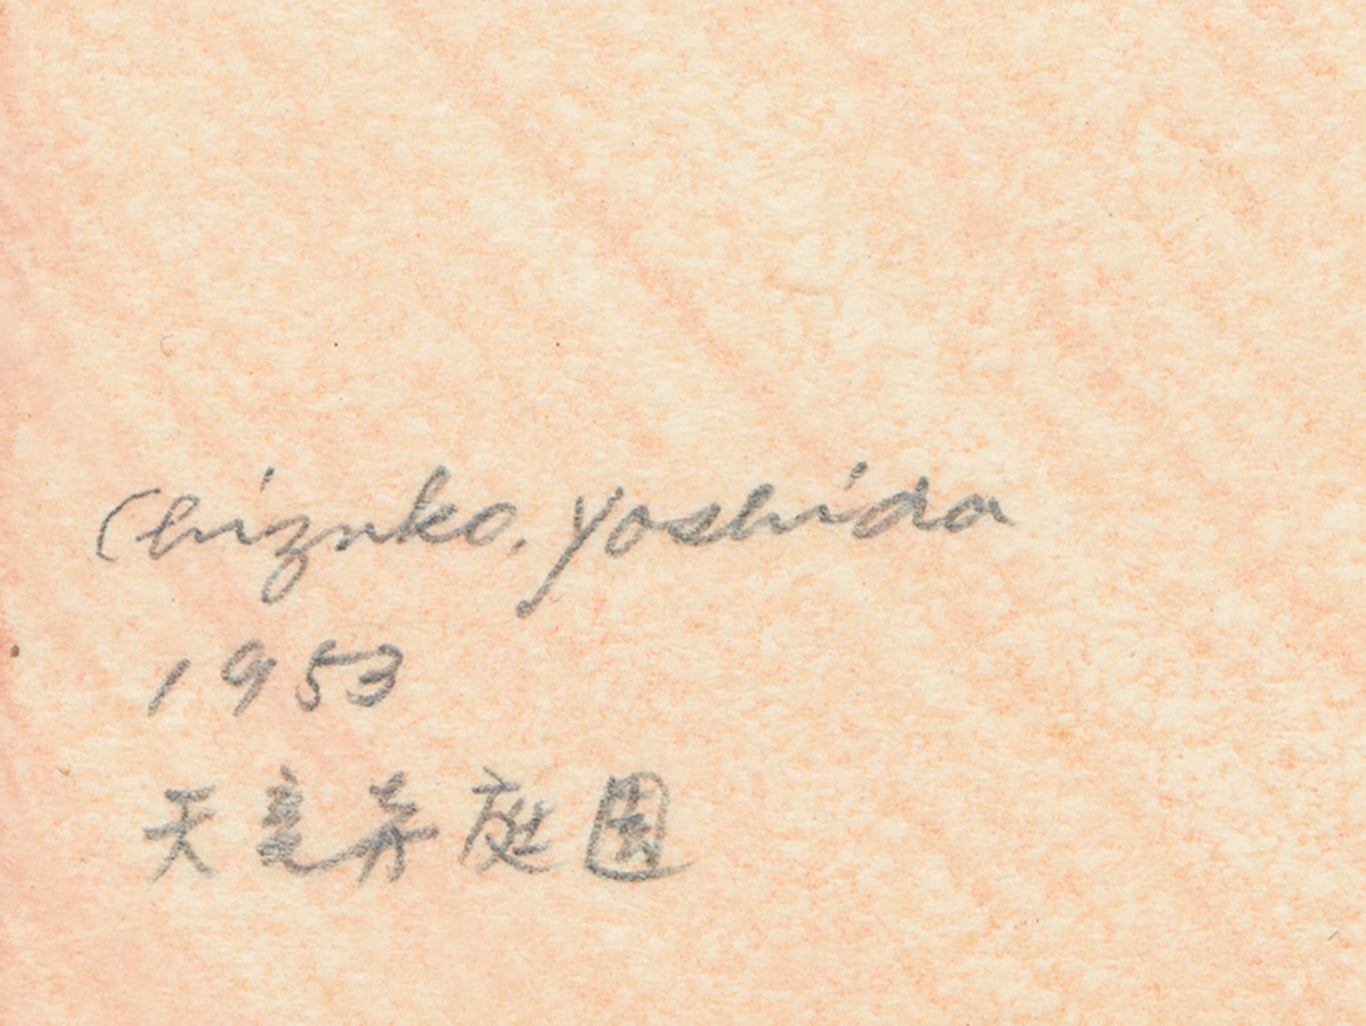 Chizuko. Yoshida
1953
天竜寺庭園